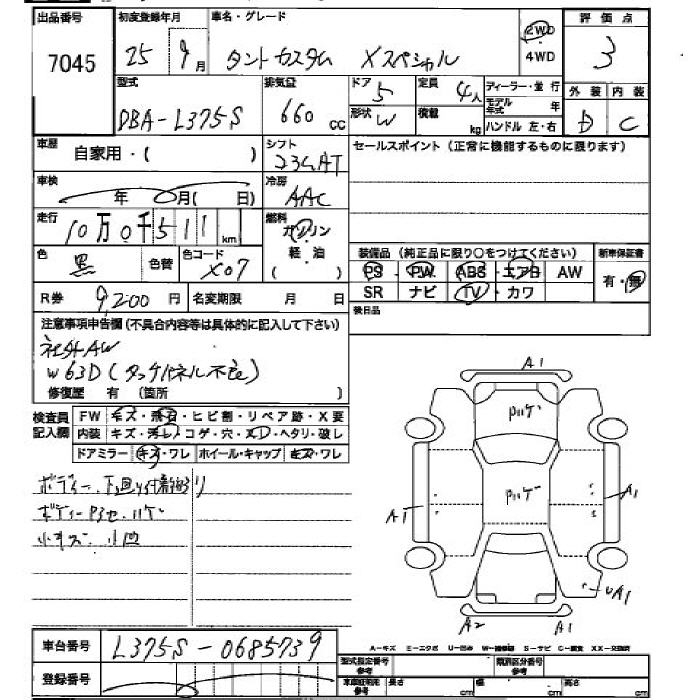 出品番号 初度登録年月 車名・グレード 2WD ・4WD 評価点
7045 25 9月 タントカスタム Xスペシャル 3
型式 排気量 ドア 定員 ディーラー・並行 外装 内装
DBA-L375S 660cc 5 4人 モデル年式 年
形状 W 積載 kg ハンドル 左・右 D C
車歴 自家用・( ) シフト 23CAT セールスポイント(正常に機能するものに限ります)
車検 年 月( 日) 冷房 AAC
走行 10万0千511km 燃料 ガソリン ・軽・油
色 黒 色替 色コード X07 装備品(純正品に限り○をつけてください) 新車保証書
PS ・ PW ABS ・ エアB AW 有・無
R券 9,200円 名変期限 月 日 SR ナビ TV ・ カワ
注意事項申告欄(不具合内容等は具体的に記入して下さい) 後日品
社外AW
W63D(タッチパネル不良)
修復歴 有(箇所 )
検査員記入欄 FW キズ・飛石・ヒビ割・リペア跡・X要
内装 キズ・汚れ・コゲ・穴・スレ・ヘタリ・破レ
ドアミラー キズ・ワレ ホイール・キャップ キズ・ワレ
ボディー、下廻り付着物有り
ボディー色アセ、ハゲ
小キズ 小凹
A1
ハゲ
ハゲ
A1 A1
UA1
A2 A1
車台番号 L375S-0685739
登録番号
A-キズ E-エクボ U-凹み W-補修跡 S-サビ C-腐食 XX-交換済
型式指定番号 参考 類別区分番号 参考
車庫証明用 参考 長さ cm 幅 cm 高さ cm